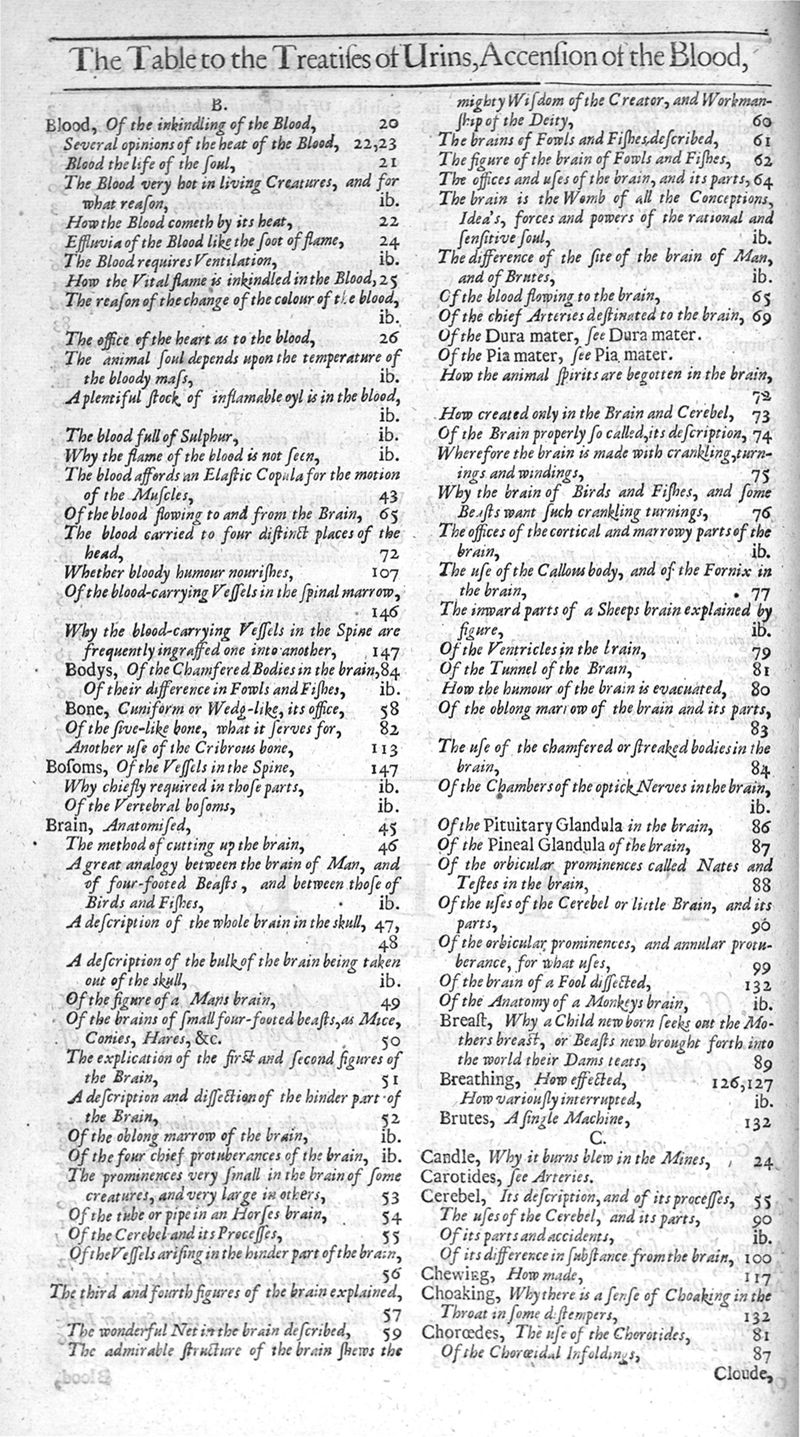 The Table to the Treatiſes of Urins, Accenſion of the Blood,
B.
Blood, Of the inkindling of the Blood, 20
Several opinions of the heat of the Blood, 22,23
Blood the life of the ſoul, 21
The Blood very hot in living Creatures, and for
what reaſon, ib.
How the Blood cometh by its heat, 22
Effluvia of the Blood like the ſoot of flame, 24
The Blood requires Ventilation, ib.
How the Vital flame is inkindled in the Blood, 25
The reaſon of the change of the colour of the blood,
ib.
The office of the heart as to the blood, 26
The animal ſoul depends upon the temperature of
the bloody maſs, ib.
A plentiful ſtock of inflamable oyl is in the blood,
ib.
The blood full of Sulphur, ib.
Why the flame of the blood is not ſeen, ib.
The blood affords an Elaſtic Copula for the motion
of the Muſcles, 43
Of the blood flowing to and from the Brain, 65
The blood carried to four diſtinct places of the
head, 72
Whether bloody humour nouriſhes, 107
Of the blood-carrying Veſſels in the ſpinal marrow,
146
Why the blood-carrying Veſſels in the Spine are
frequently ingraffed one into another, 147
Bodys, Of the Chamfered Bodies in the brain, 84
Of their difference in Fowls and Fiſhes, ib.
Bone, Cuniform or Wedg-like, its office, 58
Of the ſive-like bone, what it ſerves for, 82
Another uſe of the Cribrous bone, 113
Boſoms, Of the Veſſels in the Spine, 147
Why chiefly required in thoſe parts, ib.
Of the Vertebral boſoms, ib.
Brain, Anatomiſed, 45
The method of cutting up the brain, 46
A great analogy between the brain of Man, and
of four-footed Beaſts, and between thoſe of
Birds and Fiſhes, ib.
A deſcription of the whole brain in the skull, 47,
48
A deſcription of the bulk of the brain being taken
out of the skull, ib.
Of the figure of a Mans brain, 49
Of the brains of ſmall four-footed beaſts, as Mice,
Conies, Hares, &c. 50
The explication of the firſt and ſecond figures of
the Brain, 51
A deſcription and diſſection of the hinder part of
the Brain, 52
Of the oblong marrow of the brain, ib.
Of the four chief protuberances of the brain, ib.
The prominences very ſmall in the brain of ſome
creatures, and very large in others, 53
Of the tube or pipe in an Horſes brain, 54
Of the Cerebel and its Proceſſes, 55
Of the Veſſels ariſing in the hinder part of the brain,
56
The third and fourth figures of the brain explained,
57
The wonderful Net in the brain deſcribed, 59
The admirable ſtructure of the brain ſhews the
mighty Wiſdom of the Creator, and Workman-
ſhip of the Deity, 60
The brains of Fowls and Fiſhes, deſcribed, 61
The figure of the brain of Fowls and Fiſhes, 62
The offices and uſes of the brain, and its parts, 64
The brain is the Womb of all the Conceptions,
Idea's, forces and powers of the rational and
ſenſitive ſoul, ib.
The difference of the ſite of the brain of Man,
and of Brutes, ib.
Of the blood flowing to the brain, 65
Of the chief Arteries deſtinated to the brain, 69
Of the Dura mater, ſee Dura mater.
Of the Pia mater, ſee Pia mater.
How the animal ſpirits are begotten in the brain,
72
How created only in the Brain and Cerebel, 73
Of the Brain properly ſo called, its deſcription, 74
Wherefore the brain is made with crankling, turn-
ings and windings, 75
Why the brain of Birds and Fiſhes, and ſome
Beaſts want ſuch crankling turnings, 76
The offices of the cortical and marrowy parts of the
brain, ib.
The uſe of the Callous body, and of the Fornix in
the brain, 77
The inward parts of a Sheeps brain explained by
figure, ib.
Of the Ventricles in the brain, 79
Of the Tunnel of the Brain, 81
How the humour of the brain is evacuated, 80
Of the oblong marrow of the brain and its parts,
83
The uſe of the chamfered or ſtreaked bodies in the
brain, 84
Of the Chambers of the optick Nerves in the brain,
ib.
Of the Pituitary Glandula in the brain, 86
Of the Pineal Glandula of the brain, 87
Of the orbicular prominences called Nates and
Teſtes in the brain, 88
Of the uſes of the Cerebel or little Brain, and its
parts, 90
Of the orbicular prominences, and annular protu-
berance, for what uſes, 99
Of the brain of a Fool diſſected, 132
Of the Anatomy of a Monkeys brain, ib.
Breaſt, Why a Child new born ſeeks out the Mo-
thers breaſt, or Beaſts new brought forth into
the world their Dams teats, 89
Breathing, How effected, 126,127
How variouſly interrupted, ib.
Brutes, A ſingle Machine, 132
C.
Candle, Why it burns blew in the Mines, 24
Carotides, ſee Arteries.
Cerebel, Its deſcription, and of its proceſſes, 55
The uſes of the Cerebel, and its parts, 90
Of its parts and accidents, ib.
Of its difference in ſubſtance from the brain, 100
Chewing, How made, 117
Choaking, Why there is a ſenſe of Choaking in the
Throat in ſome diſtempers, 132
Chorœdes, The uſe of the Chorotides, 81
Of the Chorœidal Infoldings, 87
Cloude,